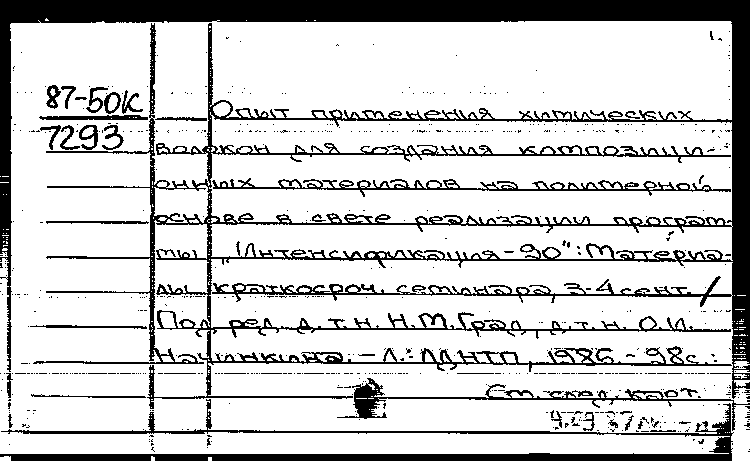 1.
87-50К
7293
Опыт применения химических
волокон для создания компози­ци-
онных материалов на полимерной
основе в свете реализации програм-
мы „Интенсификация-90": Материа-
лы краткосроч. семинара, 3-4 сент. /
Под ред. д.т.н. Н.М.Град, д.т.н. О.И.
Начинкина. - Л.: ЛДНТП, 1986. - 98с.:
См. след. карт.